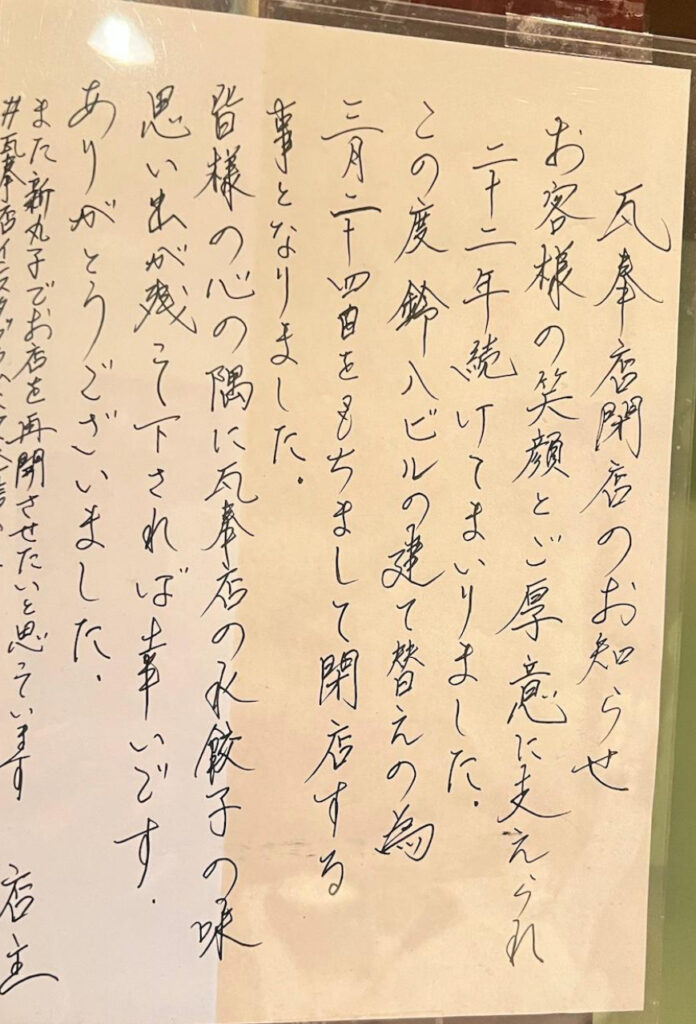 瓦奉店閉店のお知らせ
お客様の笑顔とご厚意に支えられ
二十二年続けてまいりました.
この度鈴八ビルの建て替えの為
三月二十四日をもちまして閉店する
事となりました.
皆様の心の隅に瓦奉店の水餃子の味
思い出が残って下されば幸いです.
ありがとうございました.
また新丸子でお店を再開させたいと思っています 店主
#瓦奉店インスタグラム